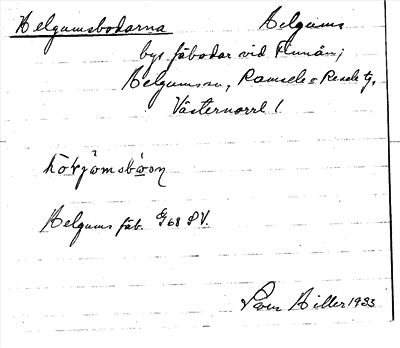 Helgumsbodarna Helgums
bys fäbodar vid Flunån;
Helgums sn, Ramsele o Resele tg,
Västernorrl l.
Helgums fäb. G68 SV.
Sven Hiller 1933